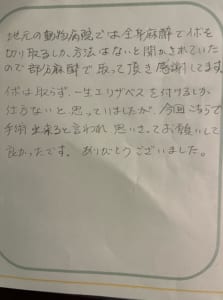 地元の動物病院では全身麻酔でイボを
切り取るしか、方法はないと聞かされていた
ので部分麻酔で取って頂き感謝してます。
イボは取らず、一生エリザベスを付けるしか
仕方ないと思っていましたが、今回こちらで
手術出来ると言われ思いきってお願いして
良かったです。ありがとうございました。